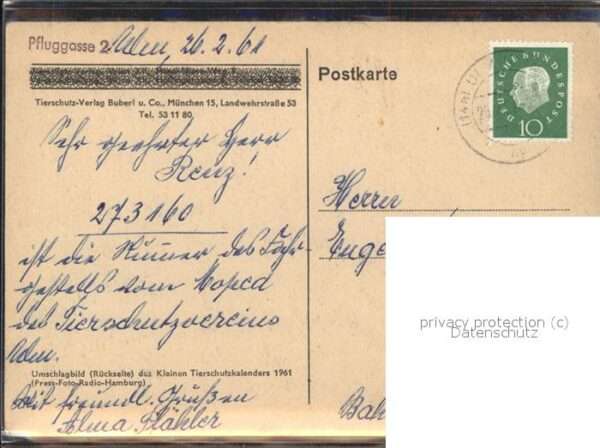 Pfluggasse 2 Ulm, 20.2.61
Tierschutz-Verlag Buberl u. Co., München 15, Landwehrstraße 53
Tel. 53 11 80
Sehr geehrter Herr
Renz!
273160
ist die Nummer des Fahr-
gestells vom Moped
des Tierschutzvereins
Ulm.
Umschlagbild (Rückseite) des Kleinen Tierschutzkalenders 1961
(Press-Foto-Radio-Hamburg)
Mit freundl. Grüßen
Alma Stähler
Postkarte
DEUTSCHE BUNDESPOST
10
Herrn
Euge
privacy protection (c)
Datenschutz
Bah